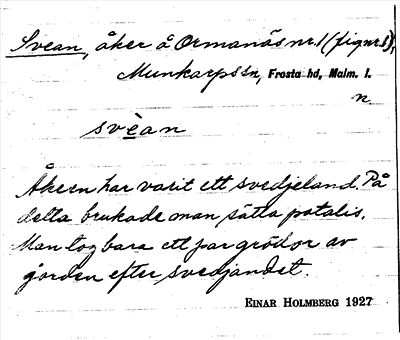 Svean, åker å Ormanäs nr 1 (fig nr 1),
Munkarps sn, Frosta hd, Malm. l.
n
svèan
Åkern har varit ett svedjeland. På
detta brukade man sätta potatis.
Man tog bara ett par grödor av
jorden efter svedjandet.
EINAR HOLMBERG 1927